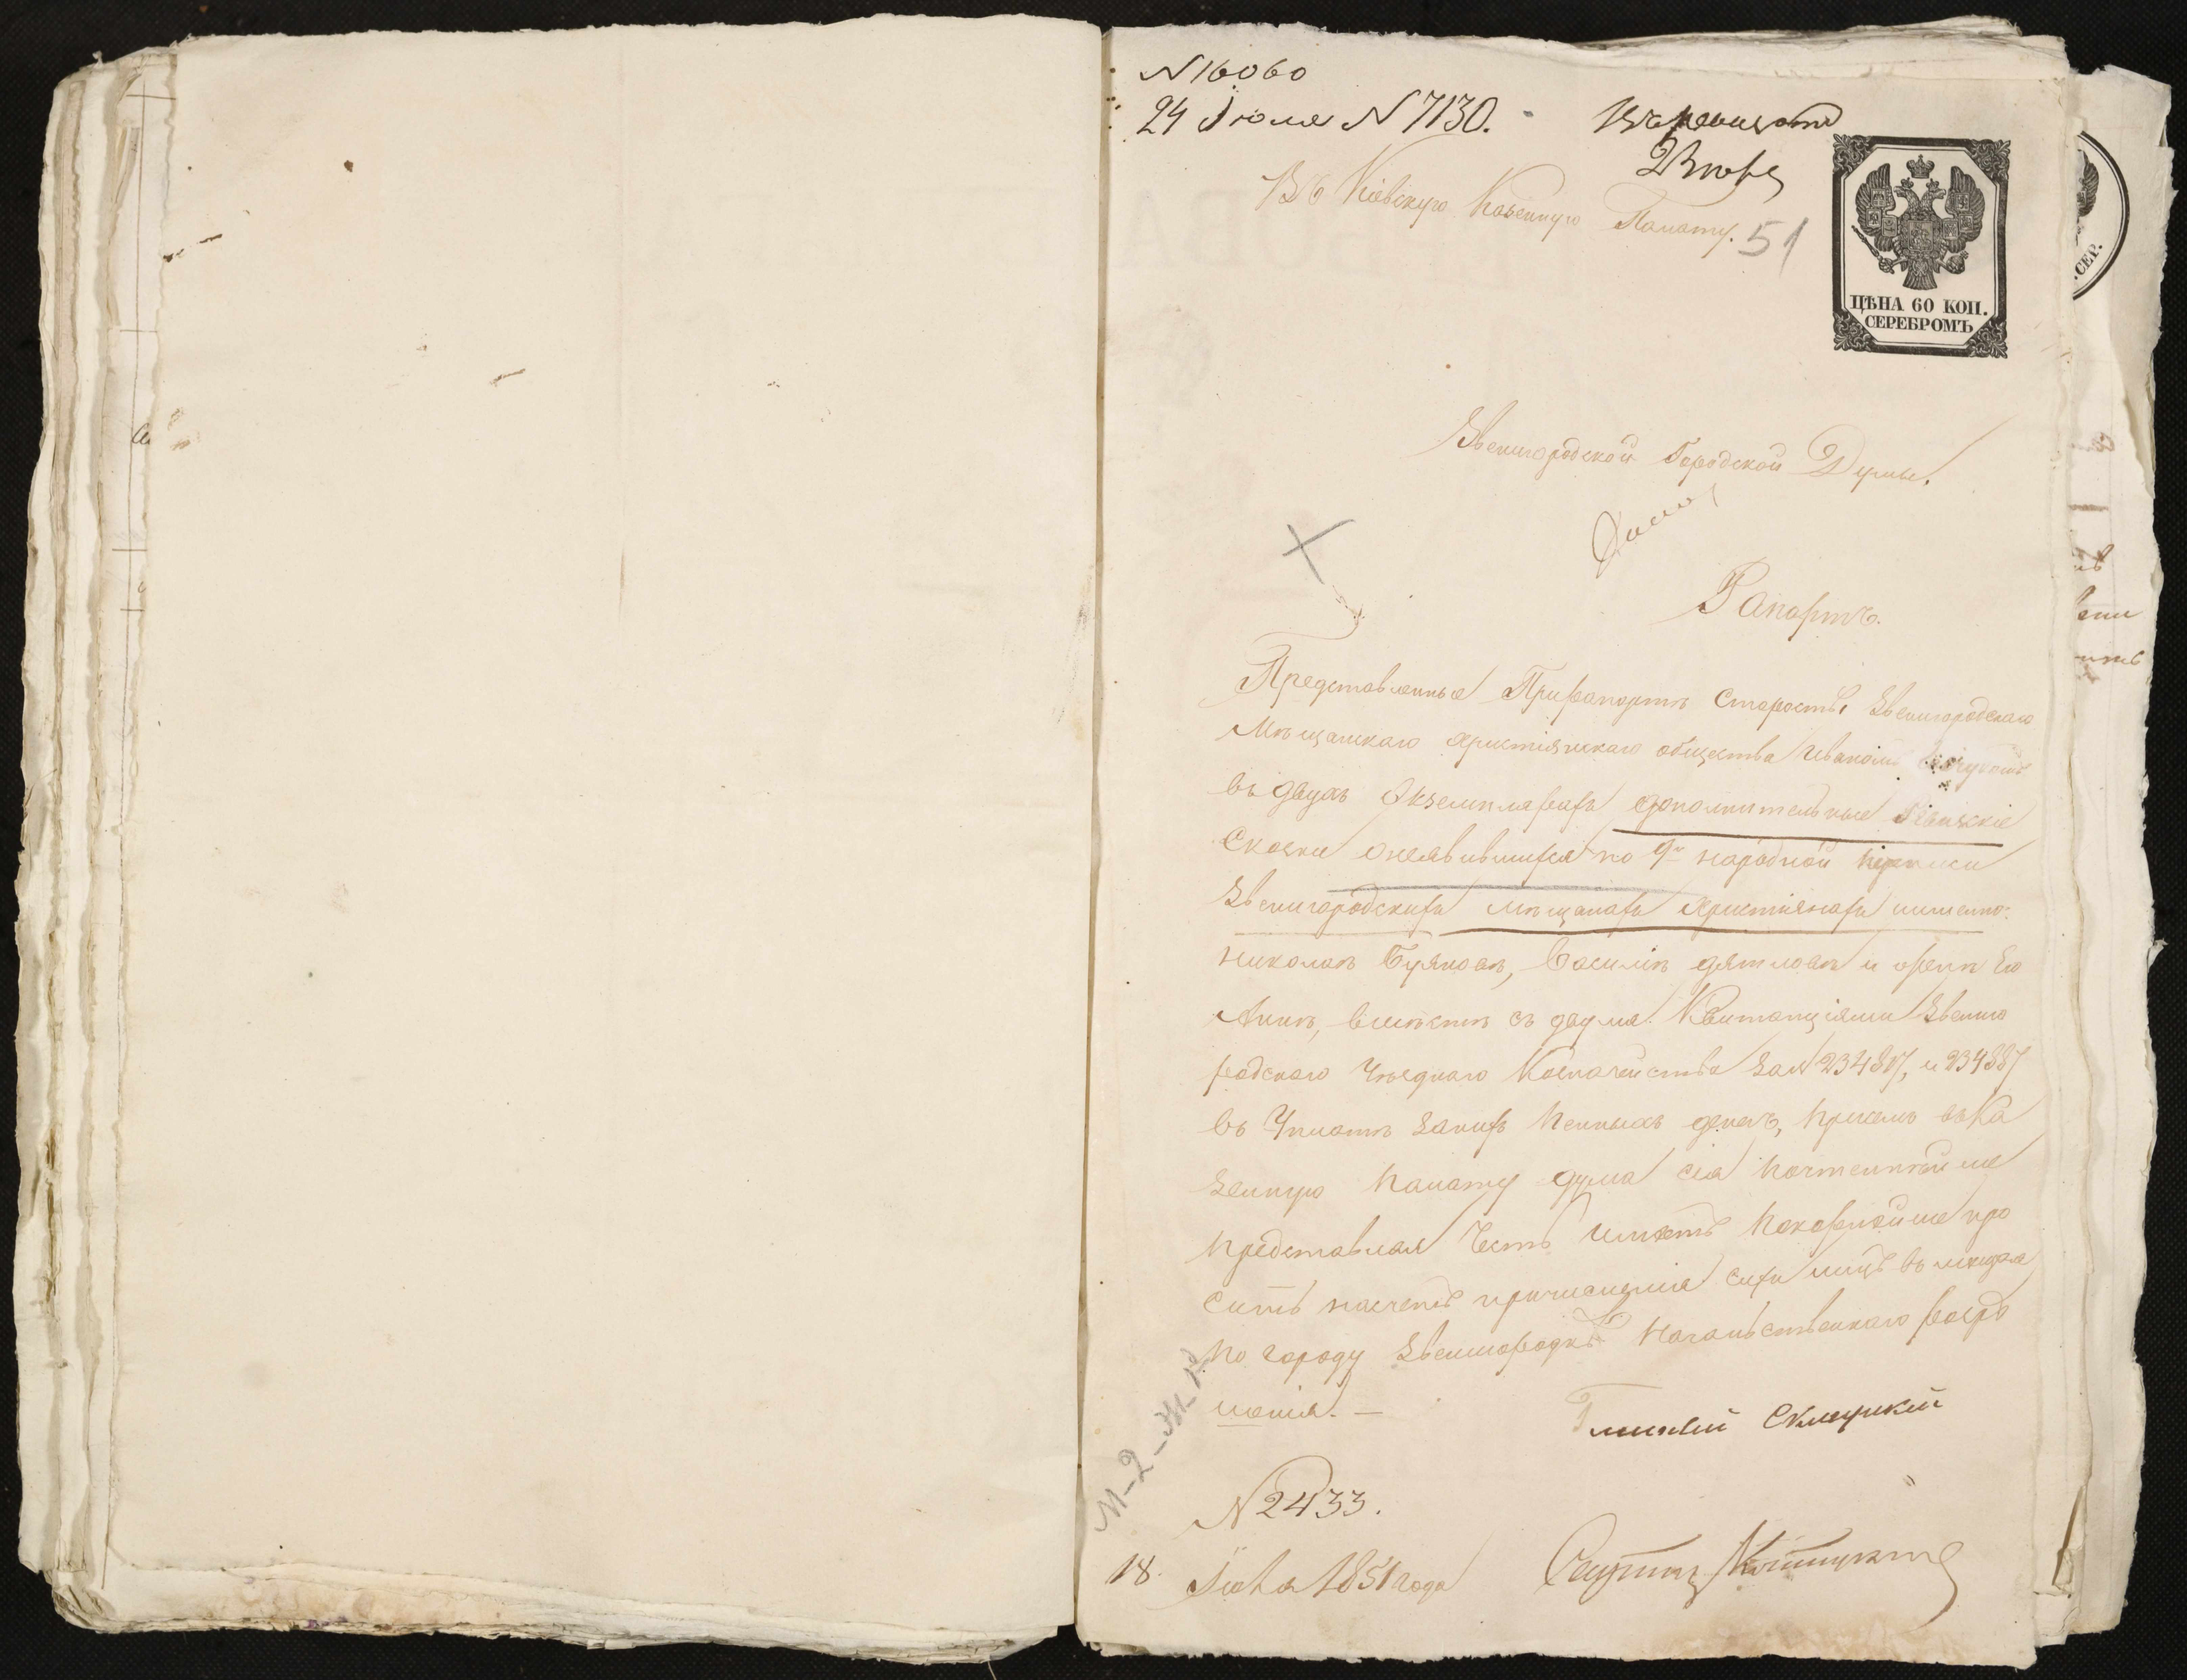 N 16060
24 Июля N 7130.
Въ Кіевскую Казенную Палату.
51
ЦѢНА 60 КОП.
СЕРЕБРОМЪ
Звенигородской Городской Думы.
Рапортъ.
Представленные При рапортѣ Старосты Звенигородскаго
Мѣщанскаго християнскаго общества Иваномъ
въ двухъ Экземплярахъ дополнительные Ревизкіе
Сказки о неявившихся по 9й народной переписи
Звенигородскихъ мѣщанахъ Християнахъ именно:
Николаѣ Буяновѣ, Василіѣ дятловѣ и женѣ Его
Аннѣ, вмѣстѣ съ двумя Квитанціями Звениго
родскаго Уѣзднаго Казначейства за N 23487, и 23488
въ Уплатѣ за нихъ пенныхъ денегъ, при семъ въ Ка
зенную палату дума сія почтеннѣйше
представляя Честь имѣетъ покорнѣйше про
сить насчетъ причисленія сихъ лицъ въ мещане
по городу Звенигородкѣ Начальственнаго разрѣ
шенія. —
Гласный
N 2433.
18 Іюля 1851 года